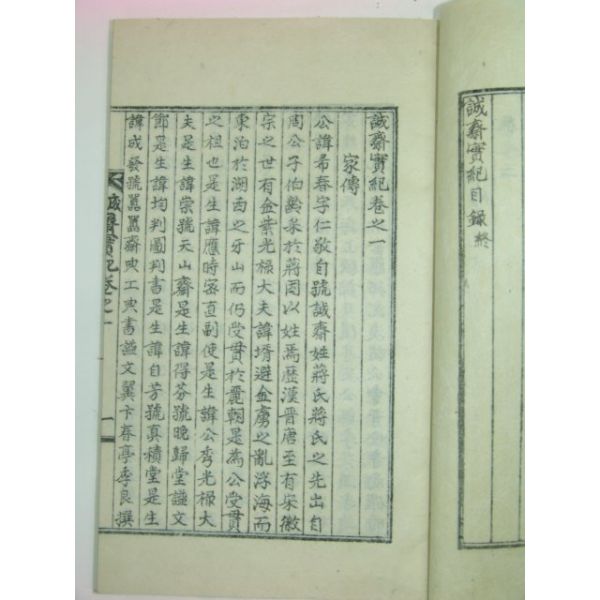 誠齋實紀目録終
誠齋實紀卷之一
家傳
公諱希春字仁敬自號誠齋姓蔣氏蔣氏之先出自
周公子伯齡菜於蔣因以姓焉歷漢晉唐至有宋徽
宗之世有金紫光祿大夫諱壻避金虜之亂浮海而
東泊於湖西之牙山而仍受貫於麗朝是為公受貫
之祖也是生諱應時密直副使是生諱公秀光祿大
夫是生諱崇號天山齋是生諱得芬號晚歸堂謚文
節是生諱均判圖判書是生諱自芳號真積堂是生
諱成發號嚚嚚齋典工典書謚文翼卞春亭季良撰
誠齋實紀卷之一
一